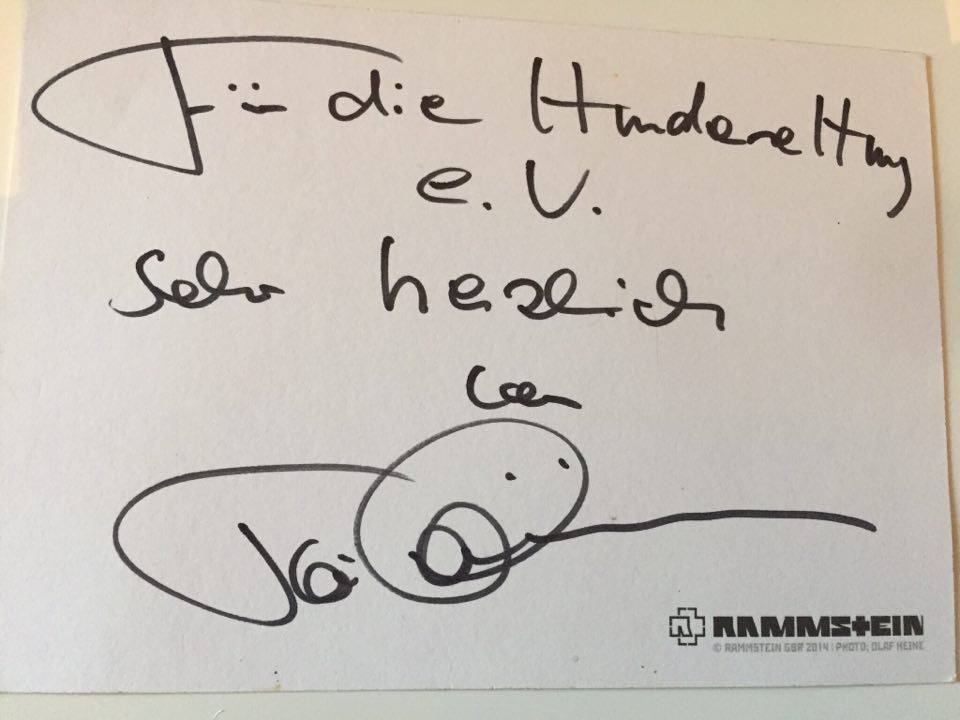 Für die Hunderettung
e. V.
Sehr herzlich
von
RAMMSTEIN
© RAMMSTEIN GBR 2014 | PHOTO: OLAF HEINE